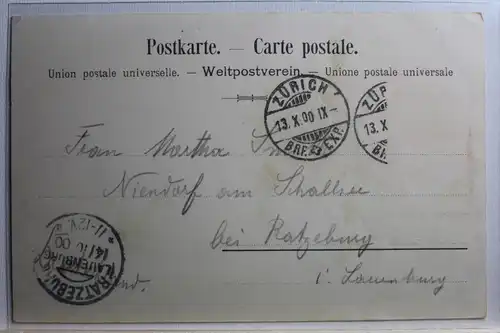 Postkarte. — Carte postale.
Union postale universelle. — Weltpostverein. — Unione postale universale
ZÜRICH 1
13. X. 00 IX–
BRF. EXP.
ZÜR
13. X
Frau Martha
Niendorf am Schallsee
bei Ratzeburg
i. Lauenburg
RATZEBURG
(LAUENBURG
14/10 00
11-12V